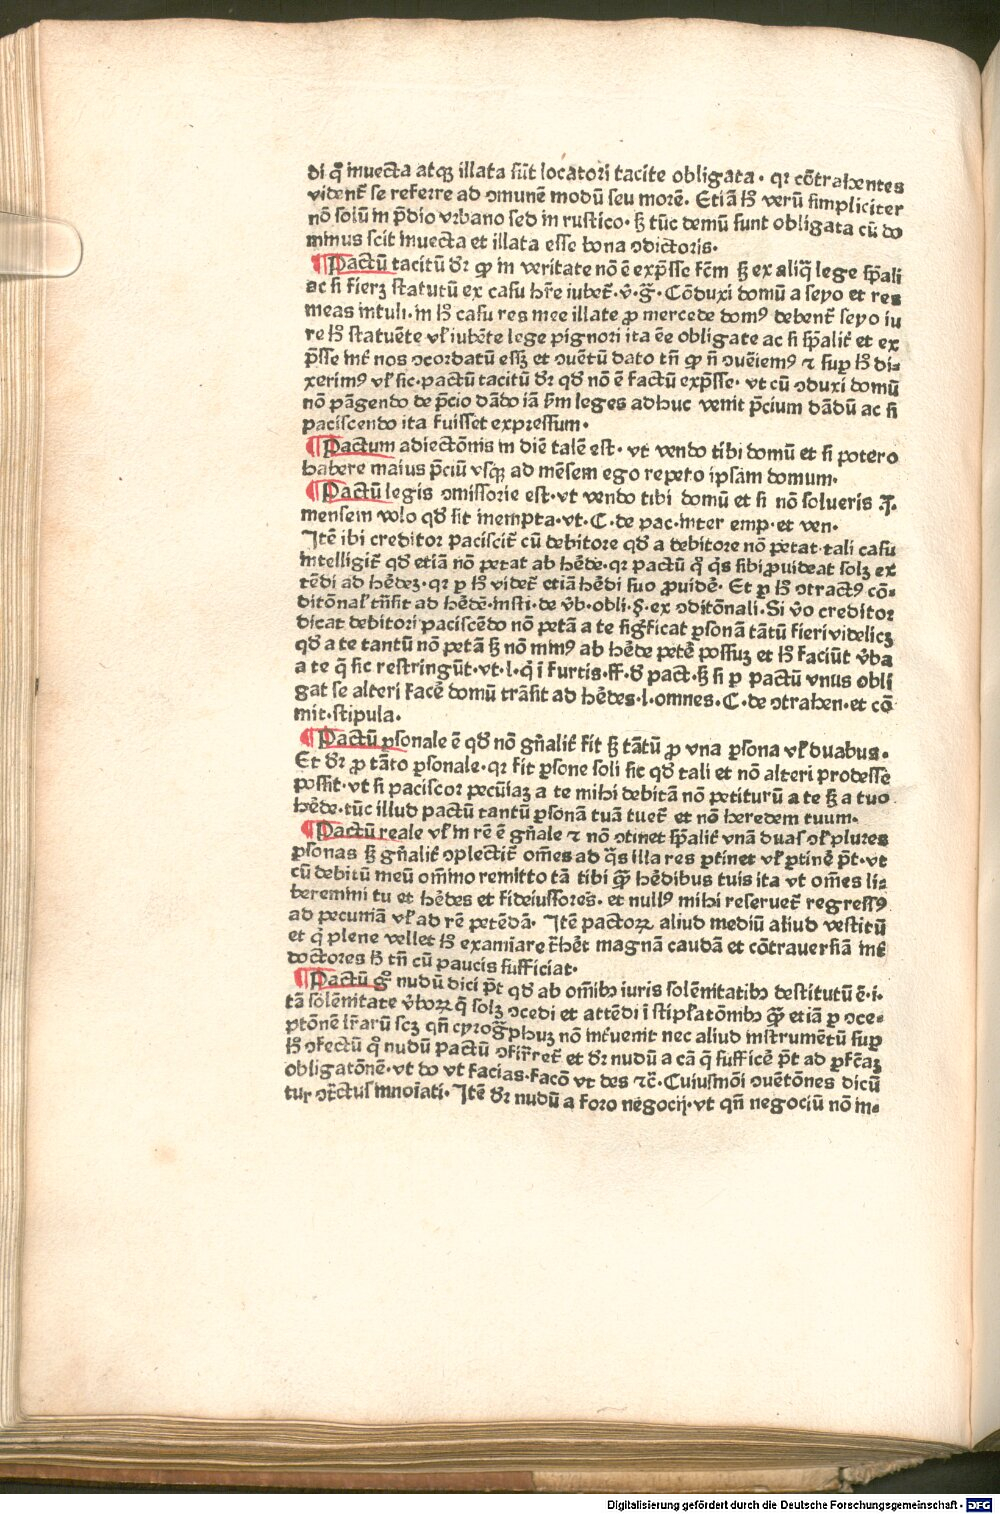 di q̄ inuecta atqꝫ illata sūt locatori tacite obligata · qꝛ cōtrahentes
vident̄ se referre ad ↄmunē modū seu morē. Etiā hꝰ verū simpliciter
nō solū in p̄dio vrbano sed in rustico · sꝫ tūc demū sunt obligata cū do
minus scit inuecta et illata esse bona ↄdictoris.
¶Pactū tacitū dꝛ qꝙ in veritate nō ē exp̄sse fēm sꝫ ex aliq̄ lege sp̄ali
ac si fierꝫ statutū ex casu hr̄e iubet̄ · v̄ · g̃ · Cōduxi domū a seyo et res
meas intuli · in hꝰ casu res mee illate ꝓ mercede domꝰ debent̄ seyo iu
re hꝰ statuēte vl̕ iubēte lege pignori ita ēe obligate ac si sp̄alit̄ et ex
p̄sse int̄ nos ↄcordatū essꝫ et ↄuētū dato tn̄ qꝙ n̄ ↄuēiemꝰ ⁊ suꝑ hꝰ di⸗
xerimꝰ vl̕ sic · pactū tacitū dꝛ qd̕ nō ē factū exp̄sse · vt cū ↄduxi domū
nō pāgendo de p̄cio dādo iā ẜm leges adhuc venit p̄cium dādū ac si
paciscendo ita fuisset expressum ·
¶Pactum adiectōnis in diē talē est · vt vendo tibi domū et si potero
habere maius p̄ciū vsqꝫ ad mēsem ego repeto ipsam domum ·
¶Pactū legis ↄmissorie est · vt vendo tibi domū et si nō solueris
mensem volo qd̕ sit inempta · vt · C · de pac · inter emp · et ven ·
Itē ibi creditor paciscit̄ cū debitore qd̕ a debitore nō petat · tali casu
intelligit̄ qd̕ etiā nō petat ab hēde · qꝛ pactū q̊ q̄s sibi ꝓuideat solꝫ ex
tēdi ad hēdeꝫ · qꝛ ꝑ hꝰ videt̄ etiā hēdi suo ꝓuidē · Et ꝑ hꝰ ↄtractꝰ cō⸗
ditōnal̕ tn̄sit ad hēdē · insti · de v̄b · obli · §· ex ↄditōnali · Si v̊o creditor
dicat debitori paciscēdo nō petā a te sig̓ficat ꝑsonā tātū fieri videlicꝫ
qd̕ a te tantū nō petā sꝫ nō minꝰ ab hēde petē possuꝫ et hꝰ faciūt v̄ba
a te q̄ sic restringūt · vt · l · q̊ i furtis · ff · d̕ pact · sꝫ si ꝑ pactū vnus obli
gat se alteri facē domū trāsit ad hēdes · l · omnes · C · de ↄtrahen · et cō
mit · stipula ·
¶Pactū ꝑsonale ē qd̕ nō gn̄alit̄ fit sꝫ tātū ꝓ vna ꝑsona vl̕ duabus ·
Et dꝛ ꝓ tāto ꝑsonale · qꝛ fit ꝑsone soli sic qd̕ tali et nō alteri prodesse
possit · vt si paciscor pecūiaꝫ a te mihi debitā nō petiturū a te sꝫ a tuo
hēde · tūc illud pactū tantū ꝑsonā tuā tuet̄ et nō heredem tuum ·
¶Pactū reale vl̕ in rē ē gn̄ale ⁊ nō ↄtinet sp̄alit̄ vnā duas vl̕ plures
ꝑsonas sꝫ gn̄alit̄ ↄplectit̄ om̄es ad q̄s illa res ꝑtinet vl̕ ꝑtinē p̄t · vt
cū debitū meū om̄imo remitto tā tibi qꝫ̄ hēdibus tuis ita vt om̄es li⸗
beremini tu et hēdes et fideiussores · et nullꝰ mihi reseruet̄ regressꝰ
ad pecuniā vl̕ ad rē petēdā · Itē pactoꝝ aliud mediū aliud vestitū
et q̊ plene vellet hꝰ examīare t̄hēt magnā caudā et cōtrauersiā int̄
doctores hꝰ tn̄ cū paucis sufficiat ·
¶Pactū gͦ nudū dici p̄t qd̕ ab om̄ibꝫ iuris solēnitatibꝫ destitutū ē · i ·
tā solēnitate v̄boꝝ q̄ solꝫ ↄcedi et attēdi ī stipl̕atōnibꝫ qꝫ̄ etiā ꝑ ↄce⸗
ptōnē lr̄arū scꝫ qn̄ cyrog̃phuꝫ nō int̄uenit nec aliud instrumētū suꝑ
hꝰ ↄfectū q̊ nudū pactū ↄfirret̄ et dꝛ nudū a cā q̄ sufficē p̄t ad ꝑfc̄aꝫ
obligatōnē · vt do vt facias · facō vt des ⁊c̄ · Cuiusmōi ↄuētōnes dicū
tur ↄtr̄ctus innoīati · Itē dꝛ nudū a foro negocij · vt qn̄ negociū nō in⸗
Digitalisierung gefördert durch die Deutsche Forschungsgemeinschaft - DFG